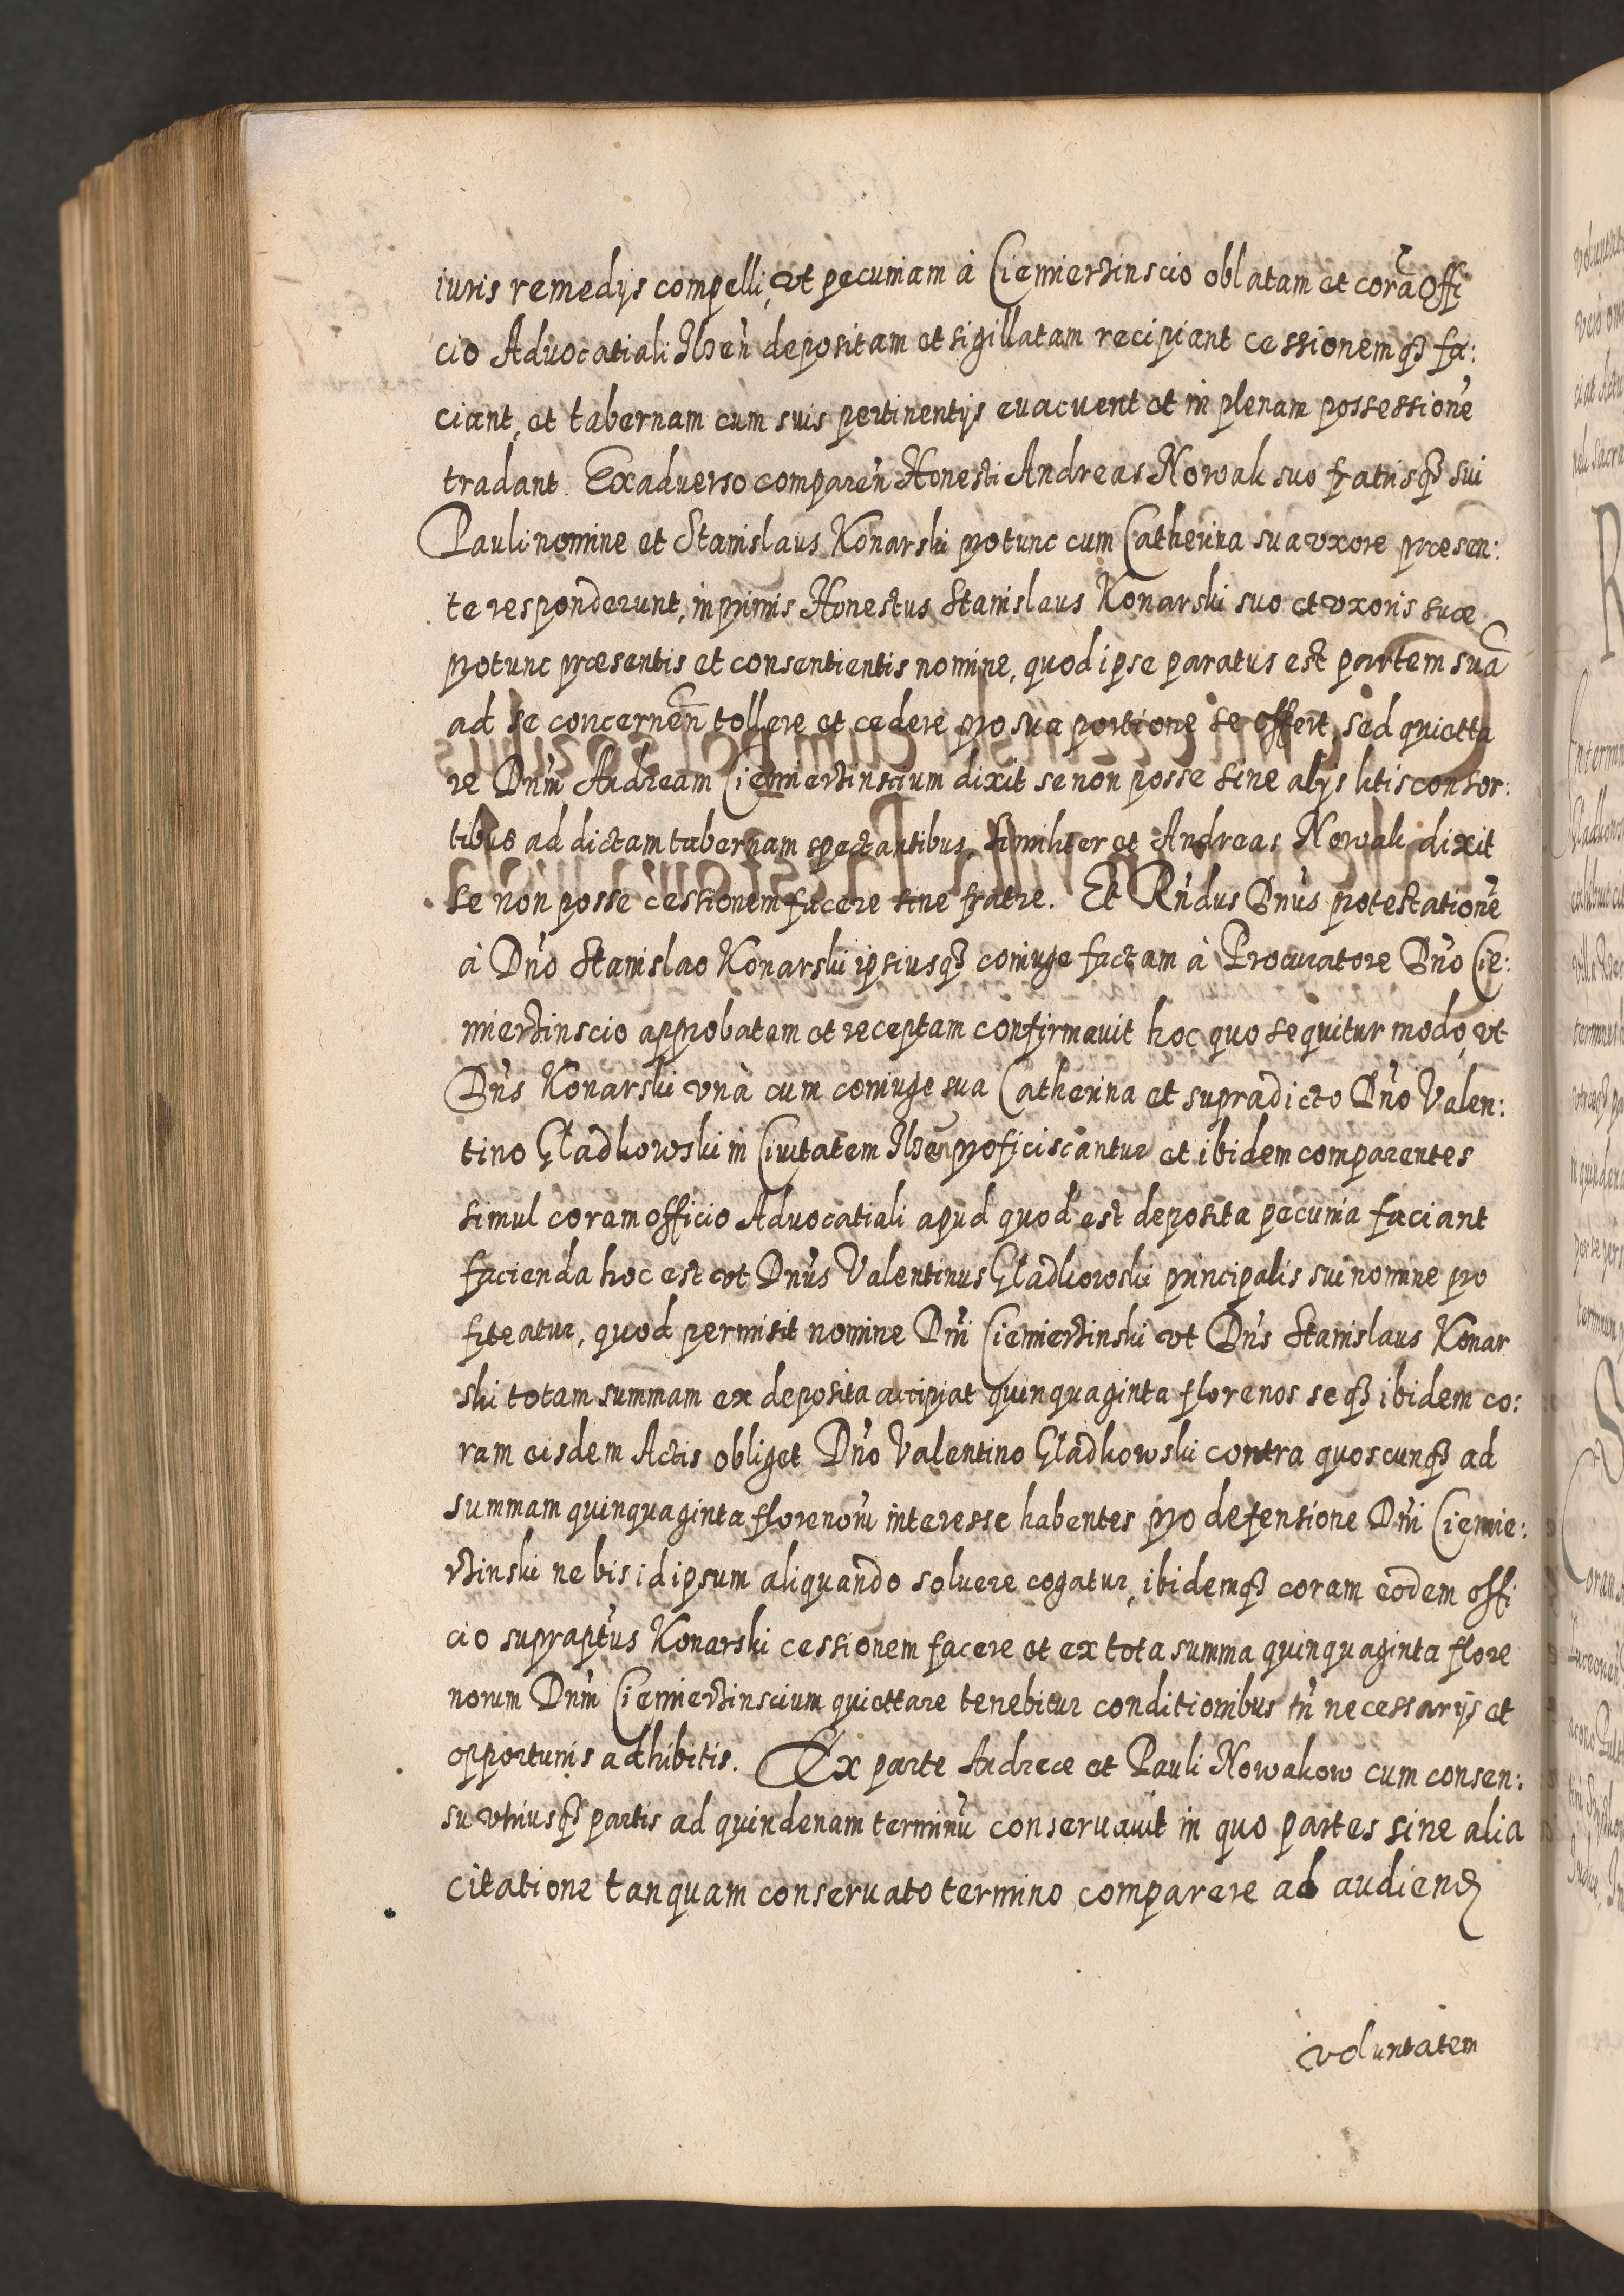 iuris remedijs compelli, vt pecuniam à Ciemierzinscio oblatam et corã Offi
cio Aduocatiali Ilzeń depositam et sigillatam recipiant cessionemqȝ fa:
ciant, et tabernam cum suis pertinentijs euacuent et in plenam possessionē
tradant. Exaduerso compareń Honesti Andreas Nowak suo fratrisqȝ sui
Pauli nomine et Stanislaus Konarski protunc cum Catherina sua vxore præsen:
te responderunt, inprimis Honestus Stanislaus Konarski suo et vxoris suæ
protunc præsentis et consentientis nomine, quod ipse paratus est partem suã
ad se concerneń tollere et cedere pro sua portione se offert, sed quietta
re Dnm̃ Andream Ciemierzinscium dixit se non posse sine alijs litis consor:
tibus ad dictam tabernam spectantibus. Similiter et Andreas Nowak dixit
se non posse cessionem facere sine fratre. Et Rńdus Dńus protestationē
à Dńo Stanislao Konarski ipsiusqȝ coniuge factam à Procuratore Dńo Cie:
mierzinscio approbatam et receptam confirmauit hoc quo sequitur modo, vt
Dńs Konarski vnà cum coniuge sua Catherina et supradicto Dńo Valen:
tino Gladkowski in Ciuitatem Ilzeń proficiscantur et ibidem comparentes
simul coram officio Aduocatiali apud quod est deposita pecunia faciant
facienda hoc est vt Dńus Valentinus Gladkowski principalis sui nomine pro
fiteatur, quod permisit nomine Dńi Ciemierzinski vt Dńs Stanislaus Konar
ski totam summam ex deposita accipiat quinquaginta florenos seqȝ ibidem co:
ram eisdem Actis obliget Dńo Valentino Gladkowski contra quoscunqȝ ad
summam quinquaginta florenorũ interesse habentes pro defensione Dńi Ciemie:
rzinski ne bis id ipsum aliquando soluere cogatur, ibidemqȝ coram eodem offi
cio suprapt̃us Konarski cessionem facere et ex tota summa quinquaginta flore
norum Dnm̃ Ciemierzinscium quiettare tenebitur conditionibus tń necessarijs et
opportunis adhibitis. Ex parte Andreæ et Pauli Nowakow cum consen:
su vtriusqȝ partis ad quindenam terminũ conseruauit in quo partes sine alia
citatione tanquam conseruato termino comparere ad audiend
voluntatem